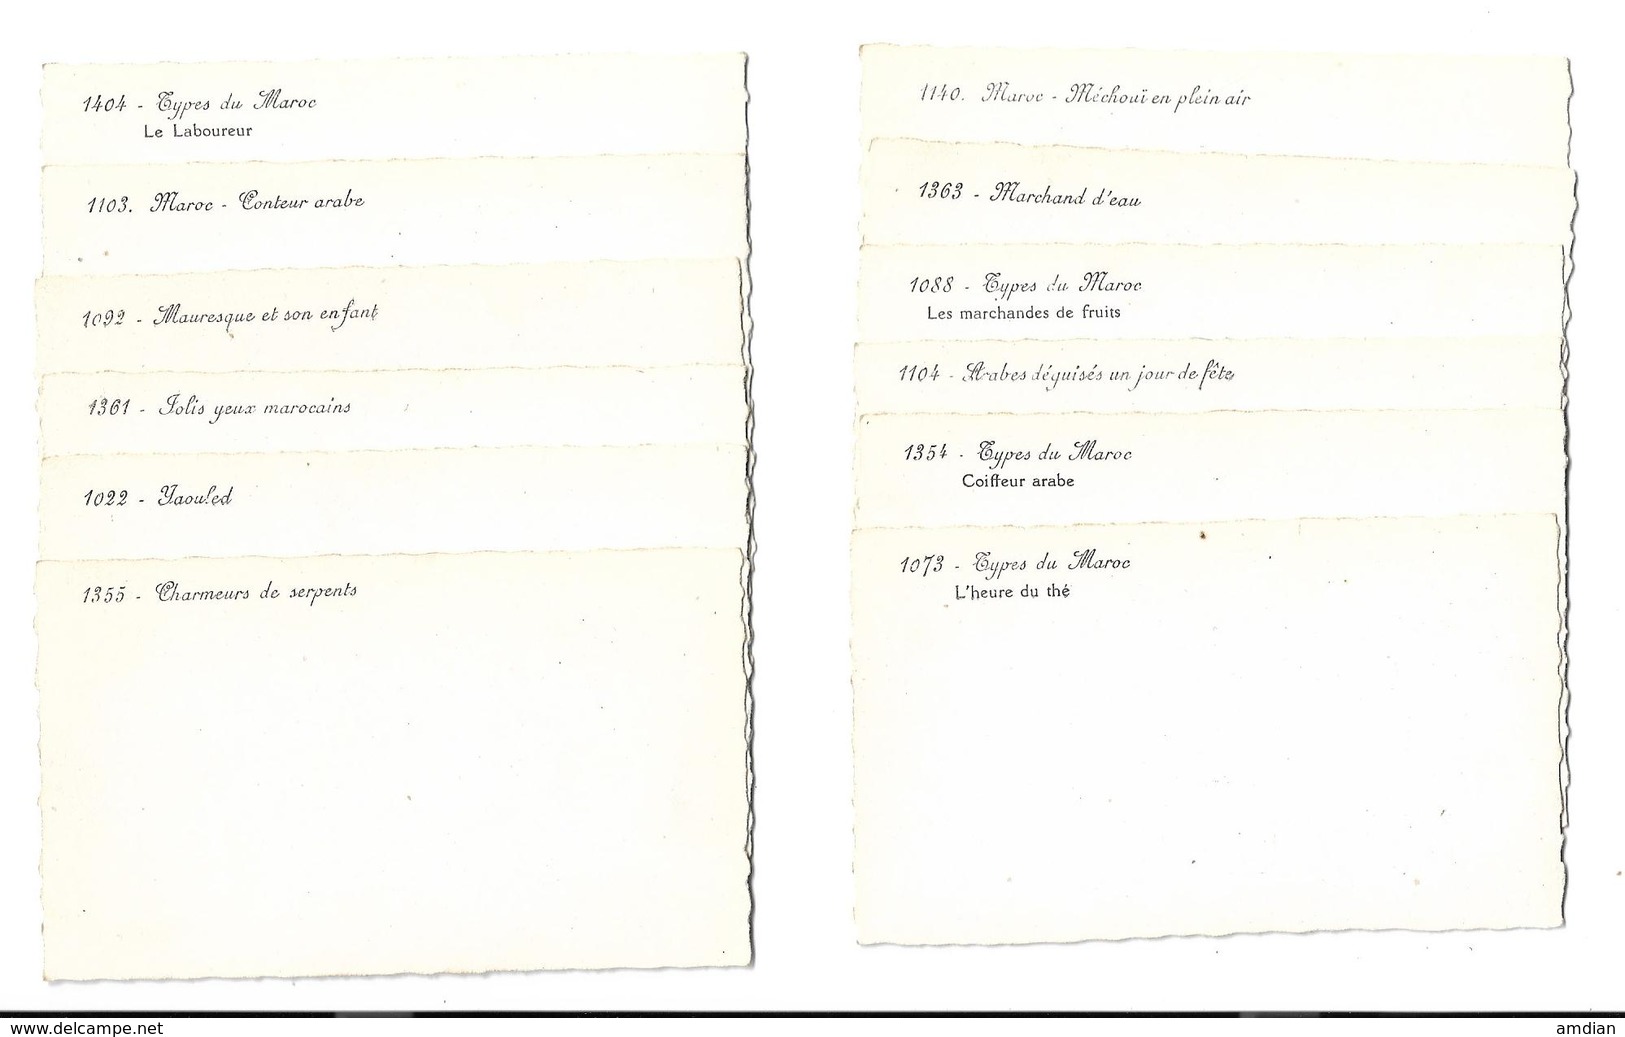 1404 - Types du Maroc
Le Laboureur
1103. Maroc - Conteur arabe
1092 - Mauresque et son enfant
1361 - Jolis yeux marocains
1022 - Yaouled
1355 - Charmeurs de serpents
1140. Maroc - Méchouï en plein air
1363 - Marchand d'eau
1088 - Types du Maroc
Les marchandes de fruits
1104 - Arabes déguisés un jour de fête
1354 - Types du Maroc
Coiffeur arabe
1073 - Types du Maroc
L'heure du thé
www.delcampe.net
amdian